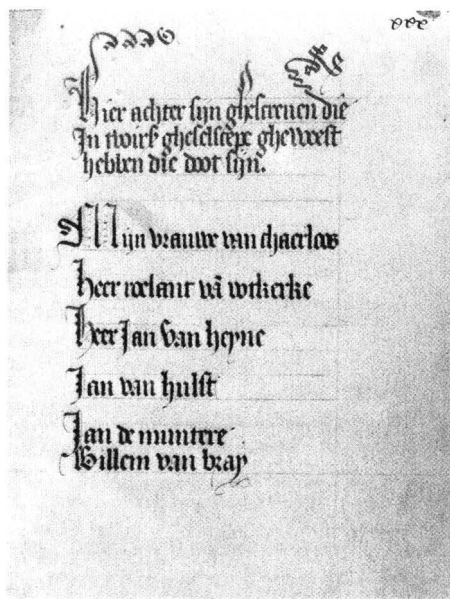 Hier achter sijn ghescreuen die
In twifs ghelscepe gheweest
hebben die doot sijn.
Mijn vrauwe van chaerloos
heer roelant vā vtkerke
heer Jan van heyne
Jan van hulst
Jan de muntere
Willem van bray